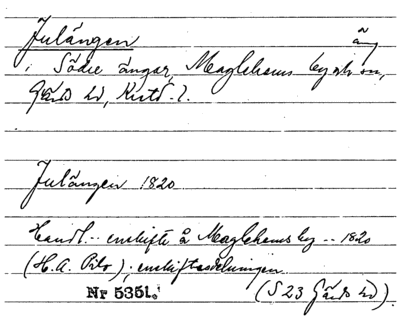 Julängen äng
i Södre ängar, Maglehems by o sn,
Gärds hd, Krist. l.
Julängen 1820
Handl... enskifte å Maglehems by -- 1820
(H. A. Pihs); enskiftesdelningen
Nr 5351. (S 23 Gärds hd).